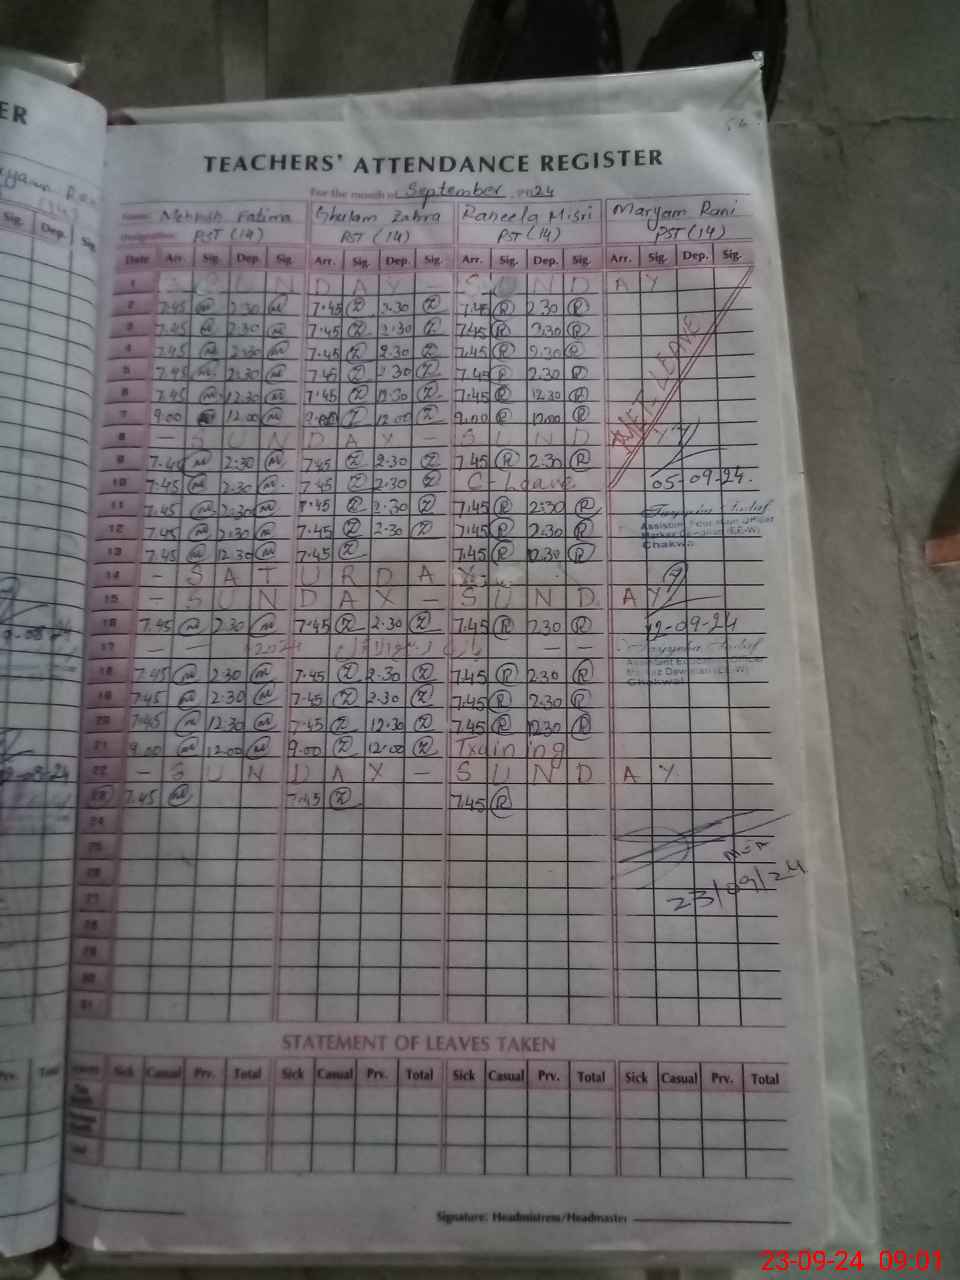 ER
TEACHERS' ATTENDANCE REGISTER
For the month of September 2024
Name: Mehnish Fatima Ghulam Zahra Raheela Misri Maryam Rani
Designation: PST (14) PST (14) PST (14) PST (14)
Date Arr. Sig. Dep. Sig. Arr. Sig. Dep. Sig. Arr. Sig. Dep. Sig. Arr. Sig. Dep. Sig.
1 S U N D A Y - S U N D A Y
2 7.45 m 2:30 m 7.45 Z 2.30 Z 7.45 R 2.30 R
3 7.45 m 2:30 m 7.45 Z 2:30 Z 7.45 R 2:30 R
4 7.45 m 2:30 m 7.45 Z 2.30 Z 7.45 R 2.30 R
5 7.45 m 2:30 m 7.45 Z 2:30 Z 7.45 R 2.30 R
6 7.45 m 12.30 m 7.45 Z 12.30 Z 7.45 R 12.30 R
7 9.00 m 12.00 m 9.00 Z 12.00 Z 9.00 R 12.00 R
LEAVE
8 - S U N D A Y - S U N D
9 7.45 m 2:30 m 7.45 Z 2.30 Z 7.45 R 2.30 R
10 7.45 m 2.30 m 7.45 Z 2.30 Z C-Leave 05-09-24.
11 7.45 m 2:30 m 7.45 Z 2:30 Z 7.45 R 2:30 R
12 7.45 m 2:30 m 7.45 Z 2:30 Z 7.45 R 2.30 R
Chakwal
13 7.45 m 12.30 m 7.45 Z 7.45 R 12.30 R
14 - S A T U R D A Y
15 - S U N D A Y - S U N D A Y
16 7.45 m 2.30 m 7.45 Z 2.30 Z 7.45 R 2.30 R 12-09-24
17 - -
Chakwal
18 7.45 m 2:30 m 7.45 Z 2.30 Z 7.45 R 2.30 R
19 7.45 m 2:30 m 7.45 Z 2.30 Z 7.45 R 2.30 R
20 7.45 m 12.30 m 7.45 Z 12.30 Z 7.45 R 12.30 R
21 9.00 m 12.00 m 9.00 Z 12.00 Z Training
22 - S U N D A Y - S U N D A Y
23 7.45 m 7.45 Z 7.45 R
24
25
26
27
23/09/24
28
29
30
31
STATEMENT OF LEAVES TAKEN
Sick Casual Prv. Total Sick Casual Prv. Total Sick Casual Prv. Total Sick Casual Prv. Total
Signature: Headmistress/Headmaster
23-09-24 09:01